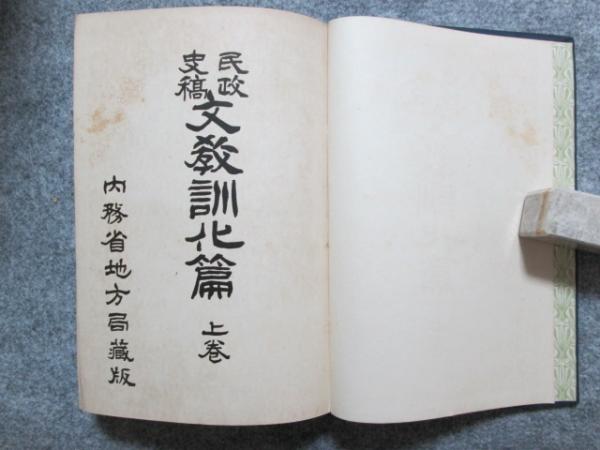 民政
史稿
文教訓化篇
上巻
内務省地方局藏版